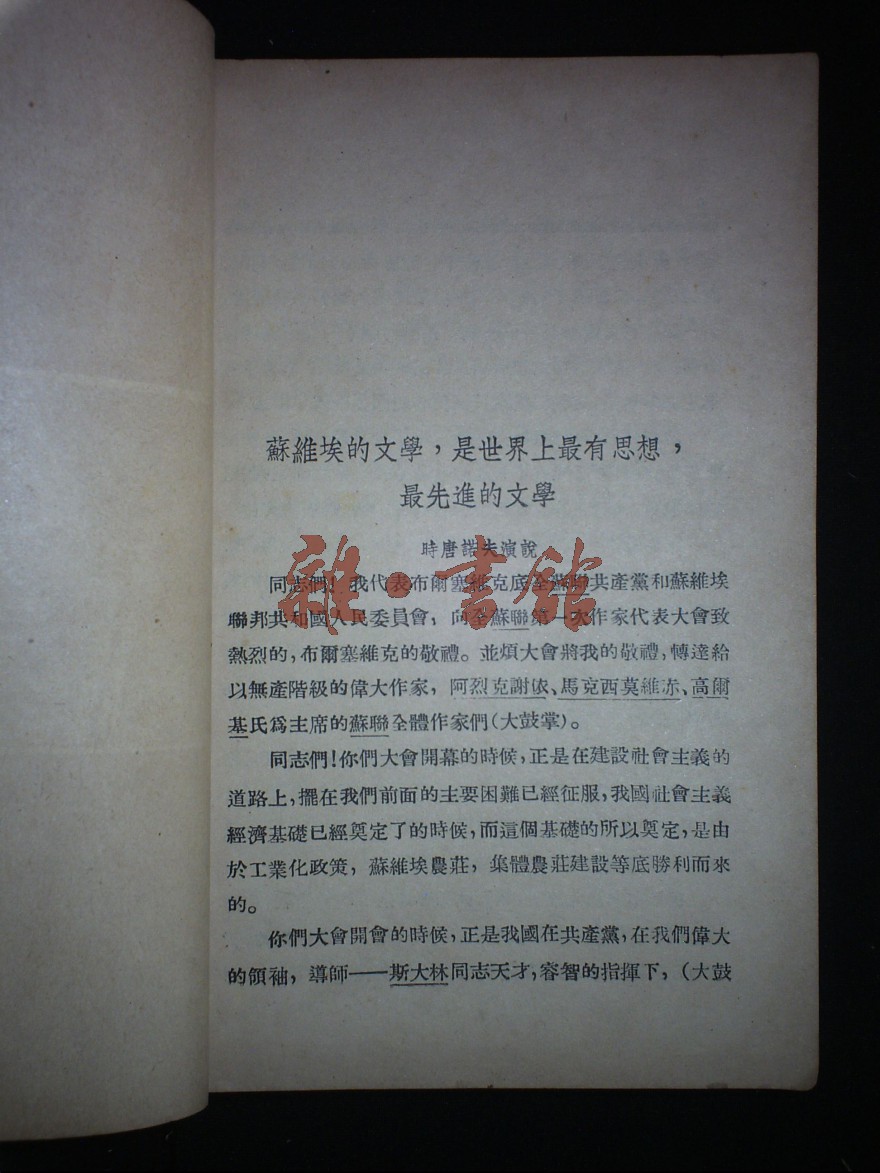 蘇維埃的文學，是世界上最有思想，
最先進的文學
時唐諾夫演說
雜·書館
同志們！我代表布爾塞維克底全蘇聯共產黨和蘇維埃
聯邦共和國人民委員會，向全蘇聯第一次作家代表大會致
熱烈的，布爾塞維克的敬禮。並煩大會將我的敬禮，轉達給
以無產階級的偉大作家，阿烈克謝依、馬克西莫維赤、高爾
基氏爲主席的蘇聯全體作家們（大鼓掌）。
同志們！你們大會開幕的時候，正是在建設社會主義的
道路上，擺在我們前面的主要困難已經征服，我國社會主義
經濟基礎已經奠定了的時候，而這個基礎的所以奠定，是由
於工業化政策，蘇維埃農莊，集體農莊建設等底勝利而來
的。
你們大會開會的時候，正是我國在共產黨，在我們偉大
的領袖，導師——斯大林同志天才，容智的指揮下，（大鼓